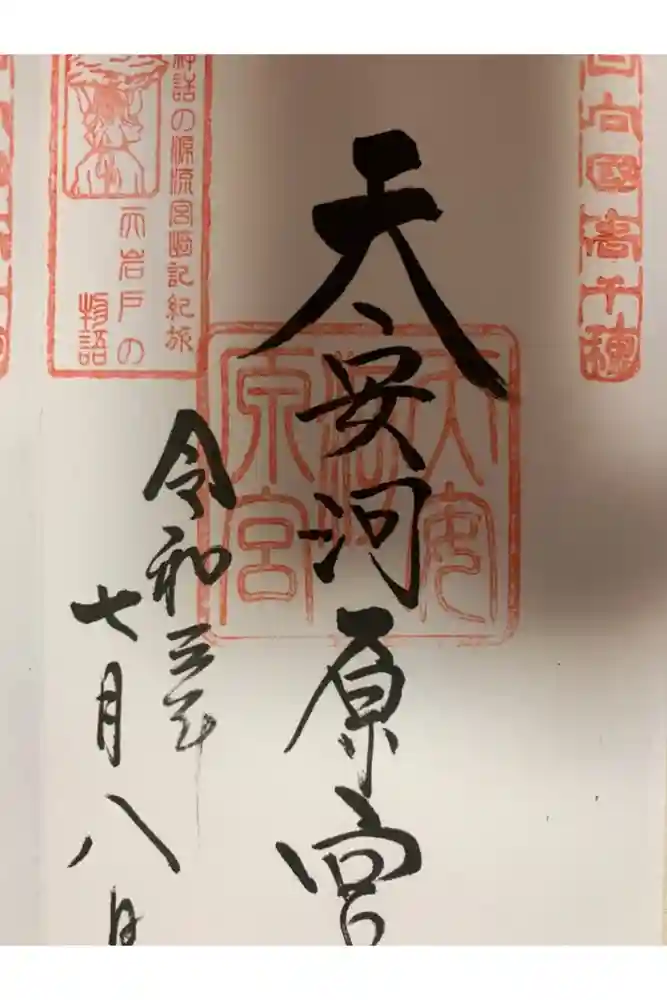 日向國高千穂
天安河原宮
天安
河
原宮
令和三年
七月八日
神話の源流宮崎記紀旅
天岩戸の
物語